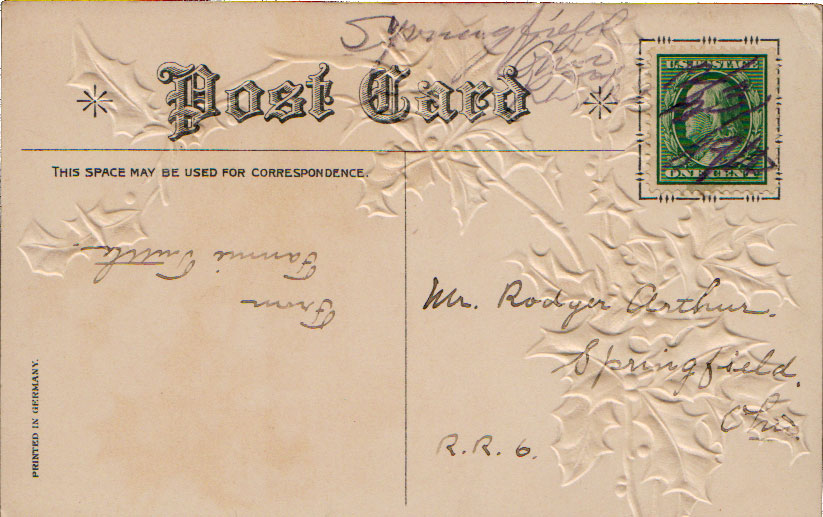 Springfield
Ohio
Post Card
U.S. POSTAGE
ONE CENT
THIS SPACE MAY BE USED FOR CORRESPONDENCE.
From
Fannie Tuttle
Mr. Rodger Arthur.
Springfield.
Ohio.
R. R. 6.
PRINTED IN GERMANY.